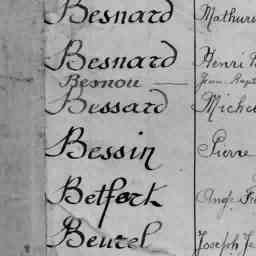 Besnard Mathuri
Besnard Henri
Besnou — Jean Bapt
Bessard Miche
Bessin Pierre
Betfort Ange Fr
Beurel Joseph Je